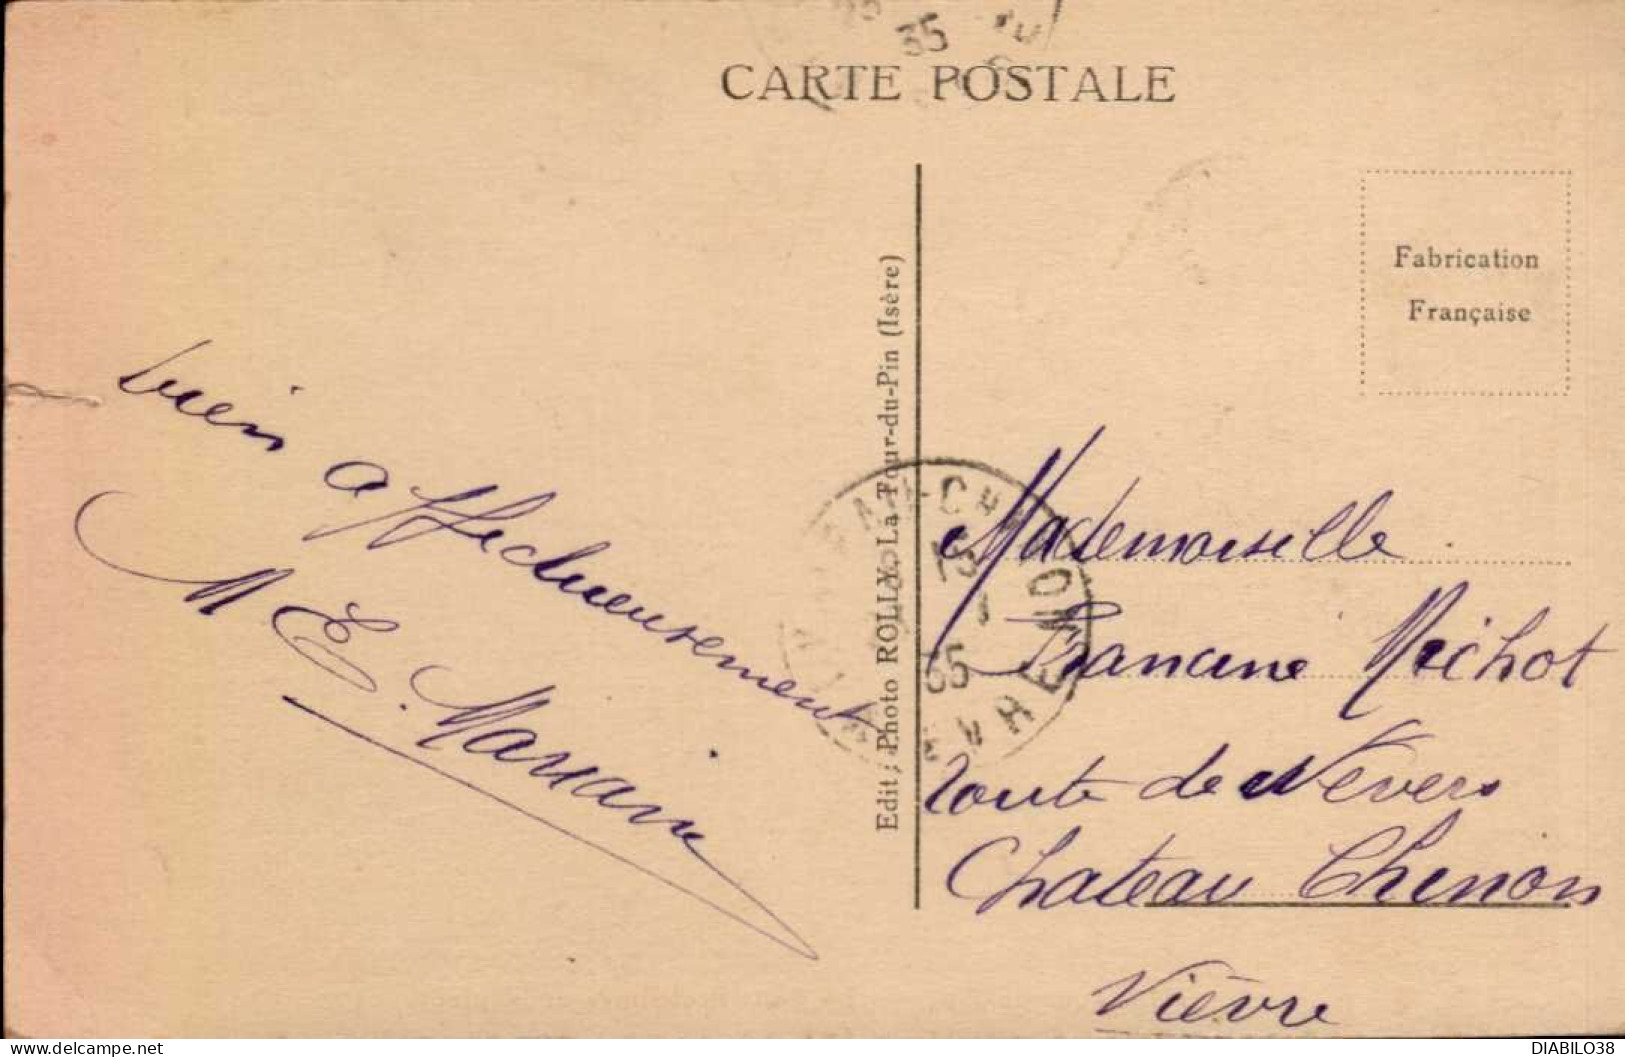 35
CARTE POSTALE
Fabrication
Française
Edit; Photo ROLLY, La Tour-du-Pin (Isère)
bien affectueusement
M E.
35
Mademoiselle
Francine Michot
route de Nevers
Chateau Chinon
Nièvre
DIABILO38